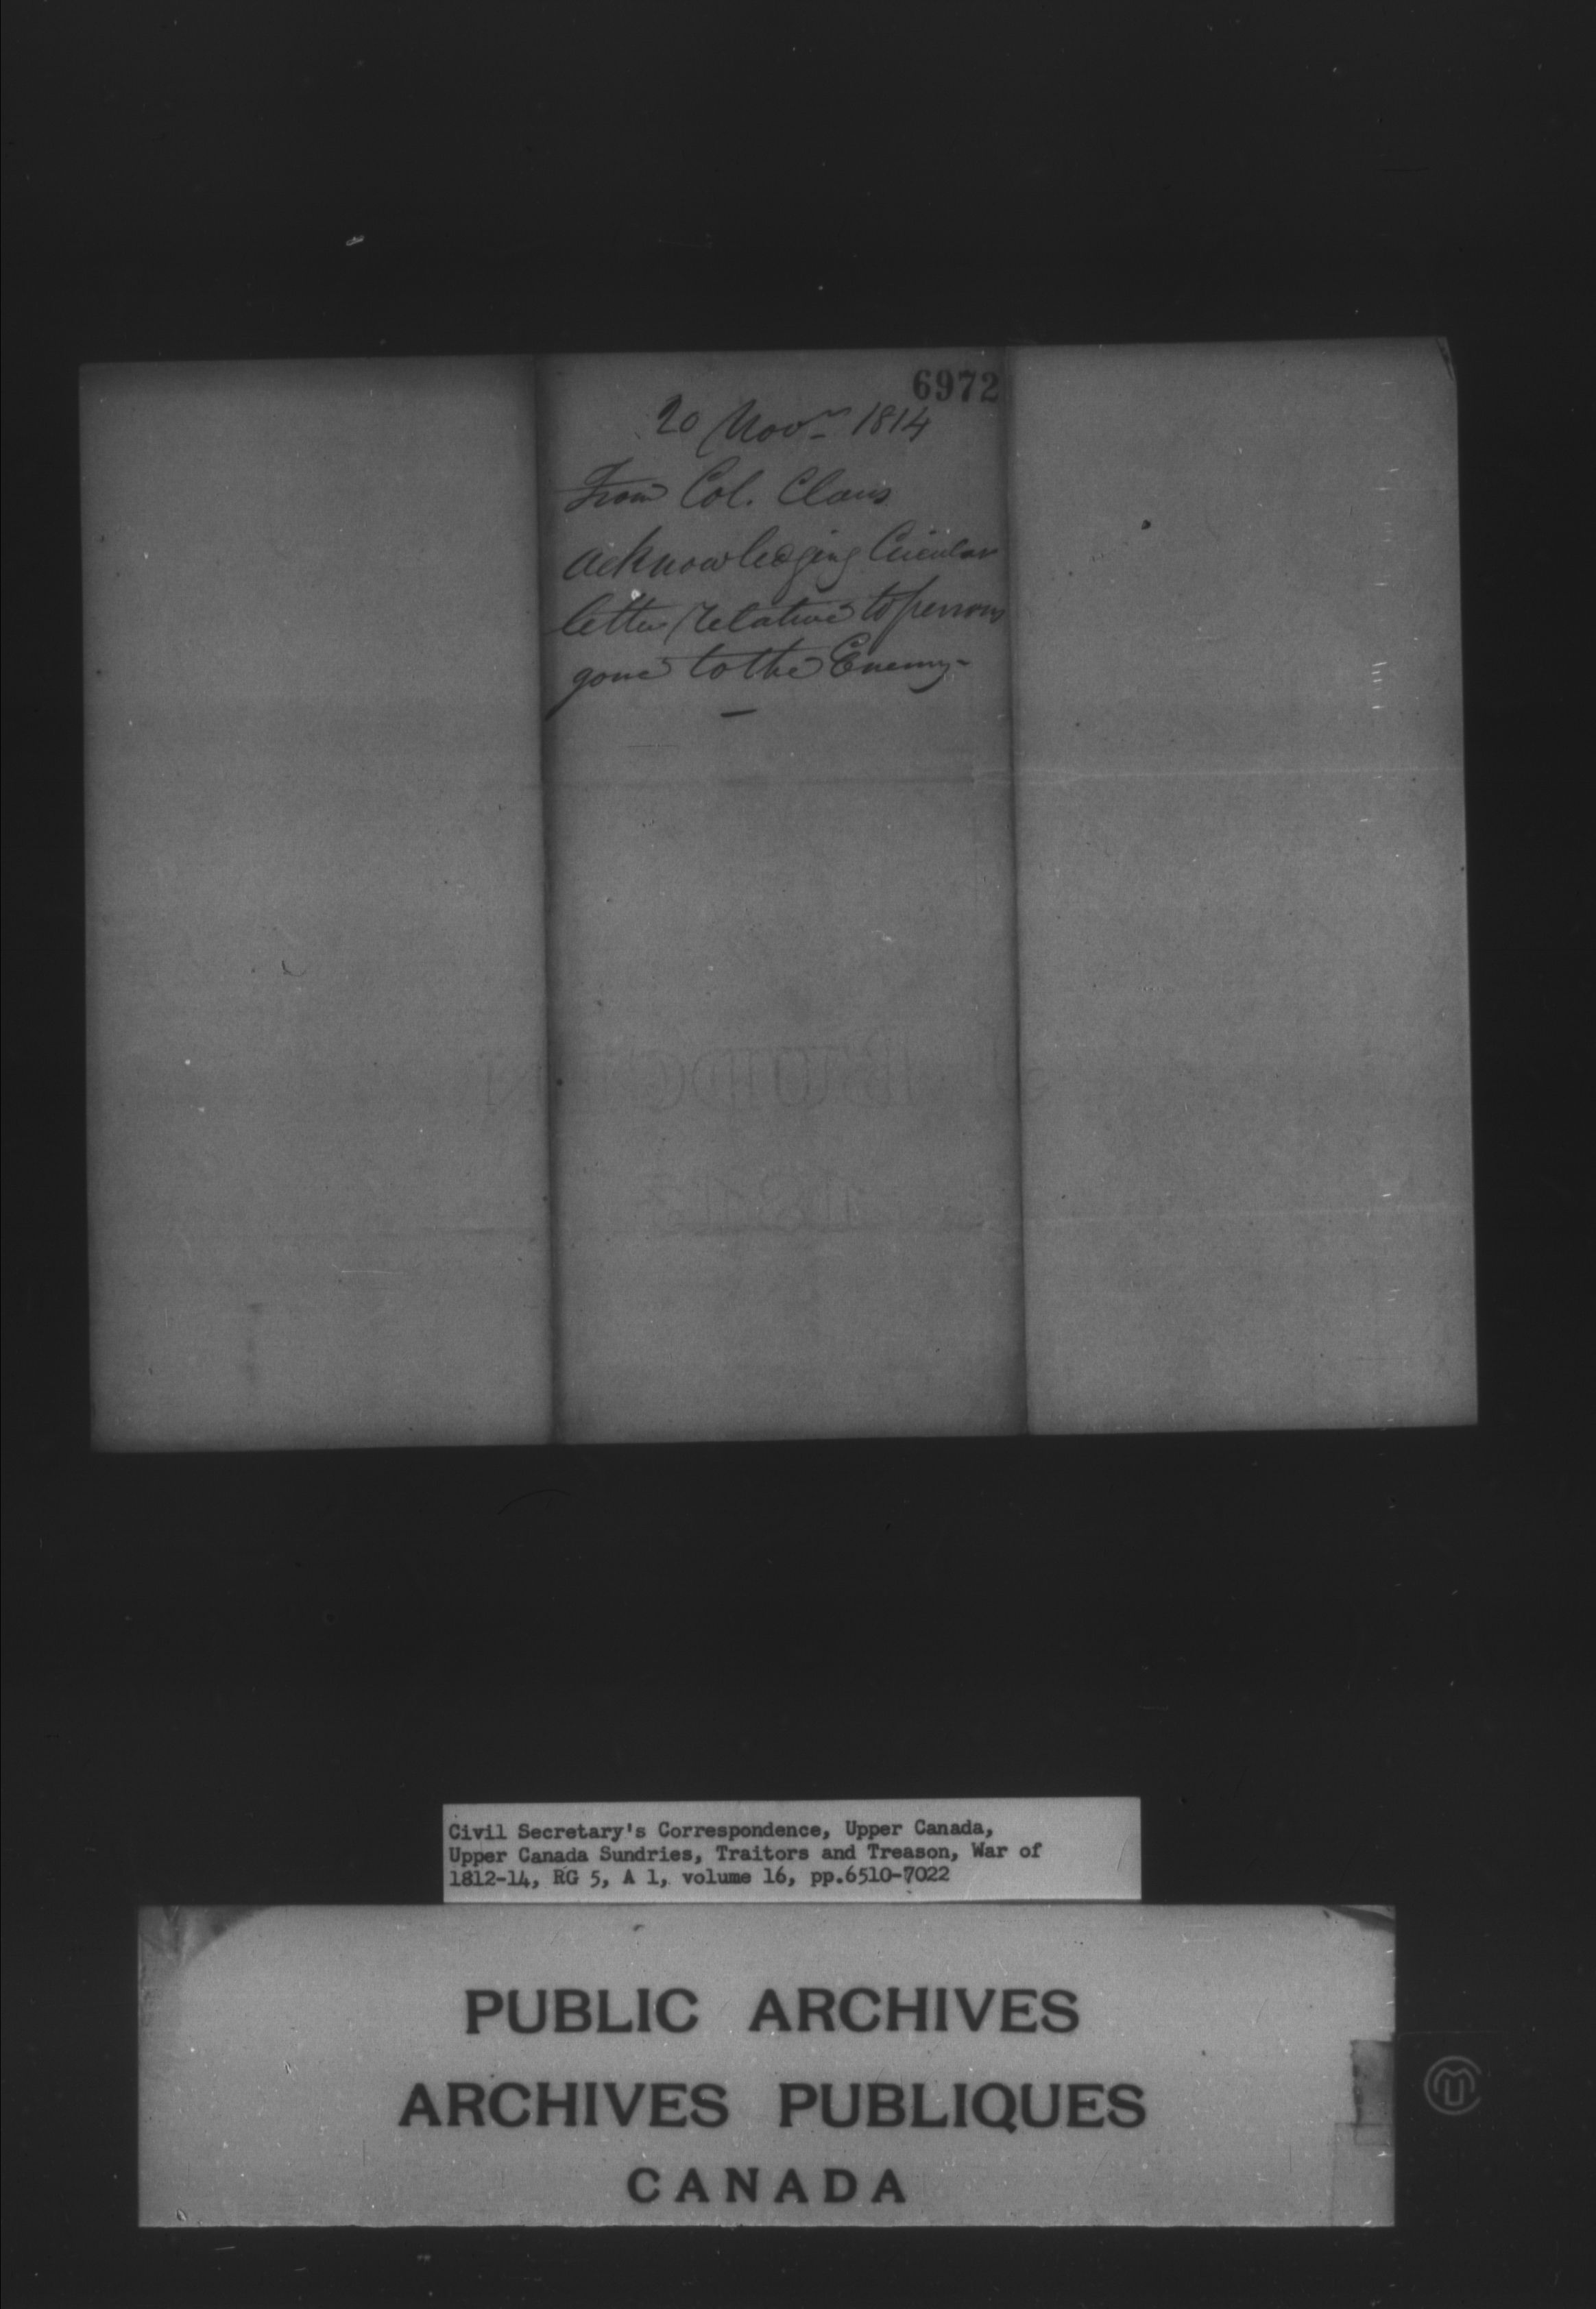 6972
20 Novr 1814
From Col. Claus
acknowledging Circular
letter relative to persons
gone to the Enemy-
Civil Secretary's Correspondence, Upper Canada,
Upper Canada Sundries, Traitors and Treason, War of
1812-14, RG 5, A 1, volume 16, pp.6510-7022
PUBLIC ARCHIVES
ARCHIVES PUBLIQUES
CANADA